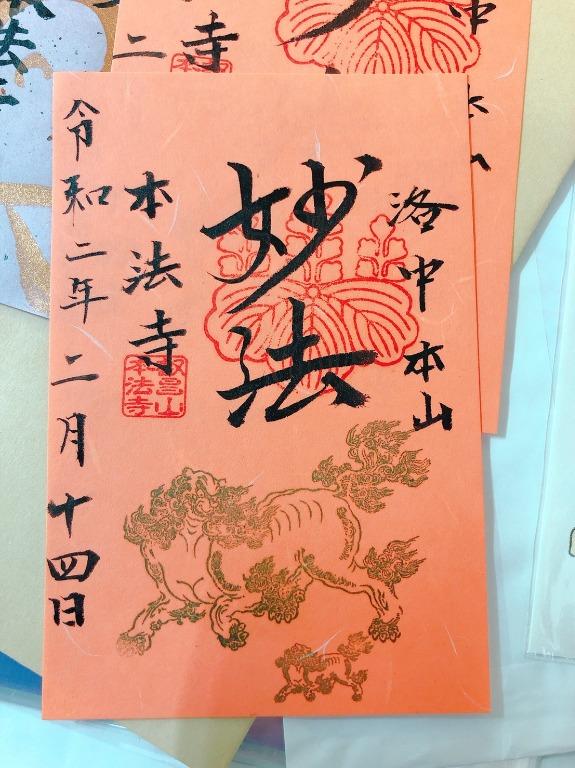 洛中本山
妙法
本法寺
叡昌山
本法寺
令和二年二月十四日
中
寺
二
法